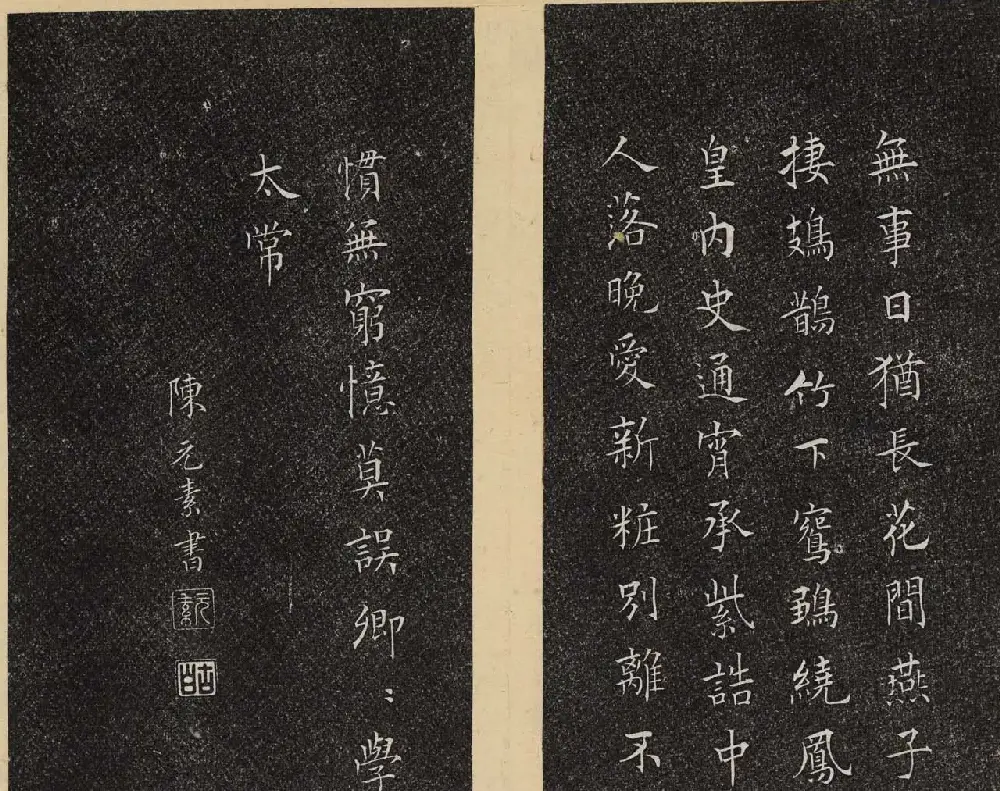 無事日猶長花間燕子
捿鳷鵲竹下鵷鶵繞鳳
皇内史通宵承紫誥中
人落晚愛新粧別離不
慣無窮憶莫誤卿〻學
太常
陳元素書
元素